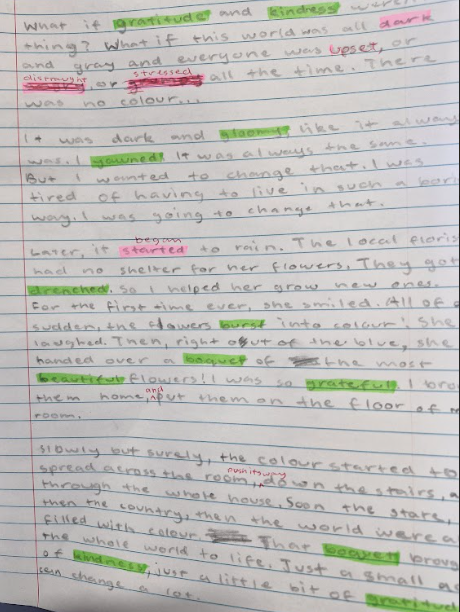 What if gratitude and kindness weren
thing? What if this world was all dark
and gray and everyone was upset, or
distraught, or stressed all the time. There
was no colour...
It was dark and gloomy like it alway
was. I yawned! It was always the same.
But I wanted to change that. I was
tired of having to live in such a bori
way. I was going to change that.
began
Later, it started to rain. The local floris
had no shelter for her flowers. They got
drenched. So I helped her grow new ones.
For the first time ever, she smiled. All of a
sudden, the flowers burst into colour! She
laughed. Then, right out of the blue, she
handed over a boquet of the most
beautiful flowers! I was so grateful. I bro
them home, and put them on the floor of m
room.
Slowly but surely, the colour started to
spread across the room, down the stairs, a
through the whole house. Soon the state,
then the country, then the world were a
filled with colour. That boquet broug
the whole world to life. Just a small a
of kindness, just a little bit of gratitud
can change a lot.